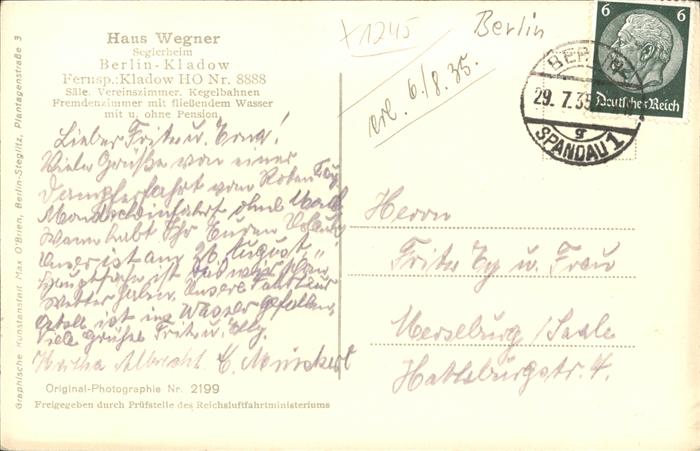 Haus Wegner
Seglerheim
Berlin-Kladow
Fernsp.: Kladow HO Nr. 8888
Säle. Vereinszimmer. Kegelbahnen
Fremdenzimmer mit fließendem Wasser
mit u. ohne Pension
Lieber Fritz u. Erna!
Viele Grüße von einer
Dampferfahrt vom Roten
Mondscheinfahrt ohne
Wann habt Ihr Euren
ist am 26. August
ist das wir schön
Wetter haben. Unsere
ist ins Wasser gefallen
Viele Grüße Fritz u. Elly.
Hertha Albrecht
Original-Photographie Nr. 2199
Freigegeben durch Prüfstelle des Reichsluftfahrtministeriums
Graphische Kunstanstalt Max O'Brien, Berlin-Steglitz, Plantagenstraße 3
x1245
Berlin
erl. 6/8.35.
6 6
Deutsches Reich
BERLIN-
29.7.35
g
SPANDAU 1
Herrn
Fritz Ey u. Frau
Merseburg/Saale
Habsburgstr. 4.